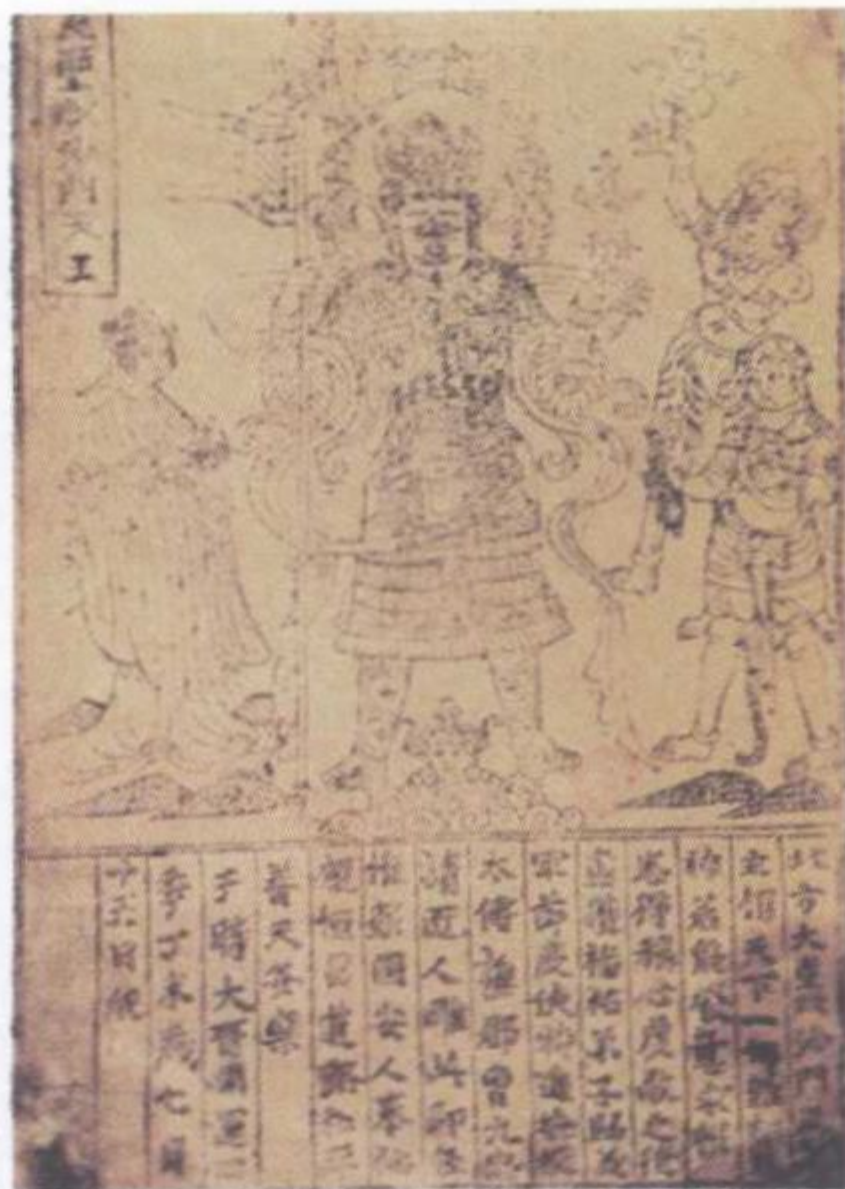 大聖毗沙門天王
北方大聖毗沙門天
主領天下一切雜類
神若能發意求願
悉得稱心虔敬之徒
盡獲福祐弟子歸義
軍節度使特進檢校
太傅譙郡曹元忠
請匠人雕此印板
惟願國安人泰社
稷恒昌道路和平
普天安樂
于時大晉開運四
年丁未歲七月
十五日紀